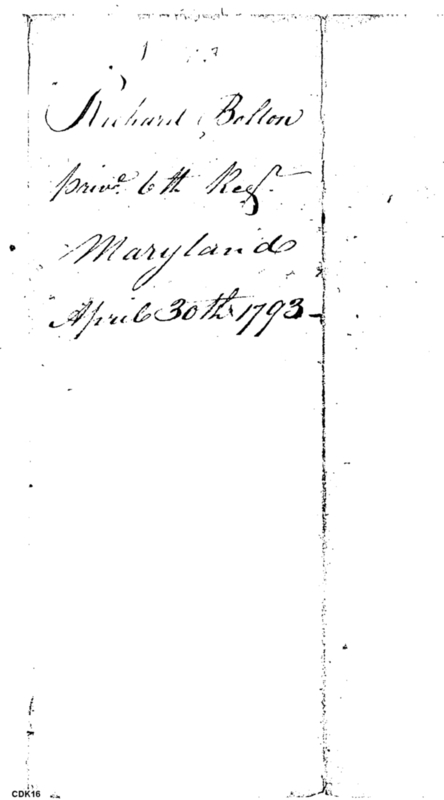 Richard Bolton
privd. 6th Regt.
Maryland
April 30th 1793-
CDK16